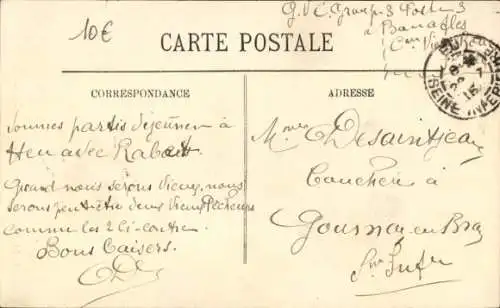 10€
G.V.C. Groupe 3 Poste 3
à
CARTE POSTALE
CORRESPONDANCE
ADRESSE
SEINE
sommes partis déjeuner à
Heu avec Rabaut.
Quand nous serons vieux, nous
serons peut-être deux vieux Pêcheurs
comme les 2 ci-contre.
Bons baisers.
Mme Desaintjean
à
Gournay-en-Bray
Sne Infre